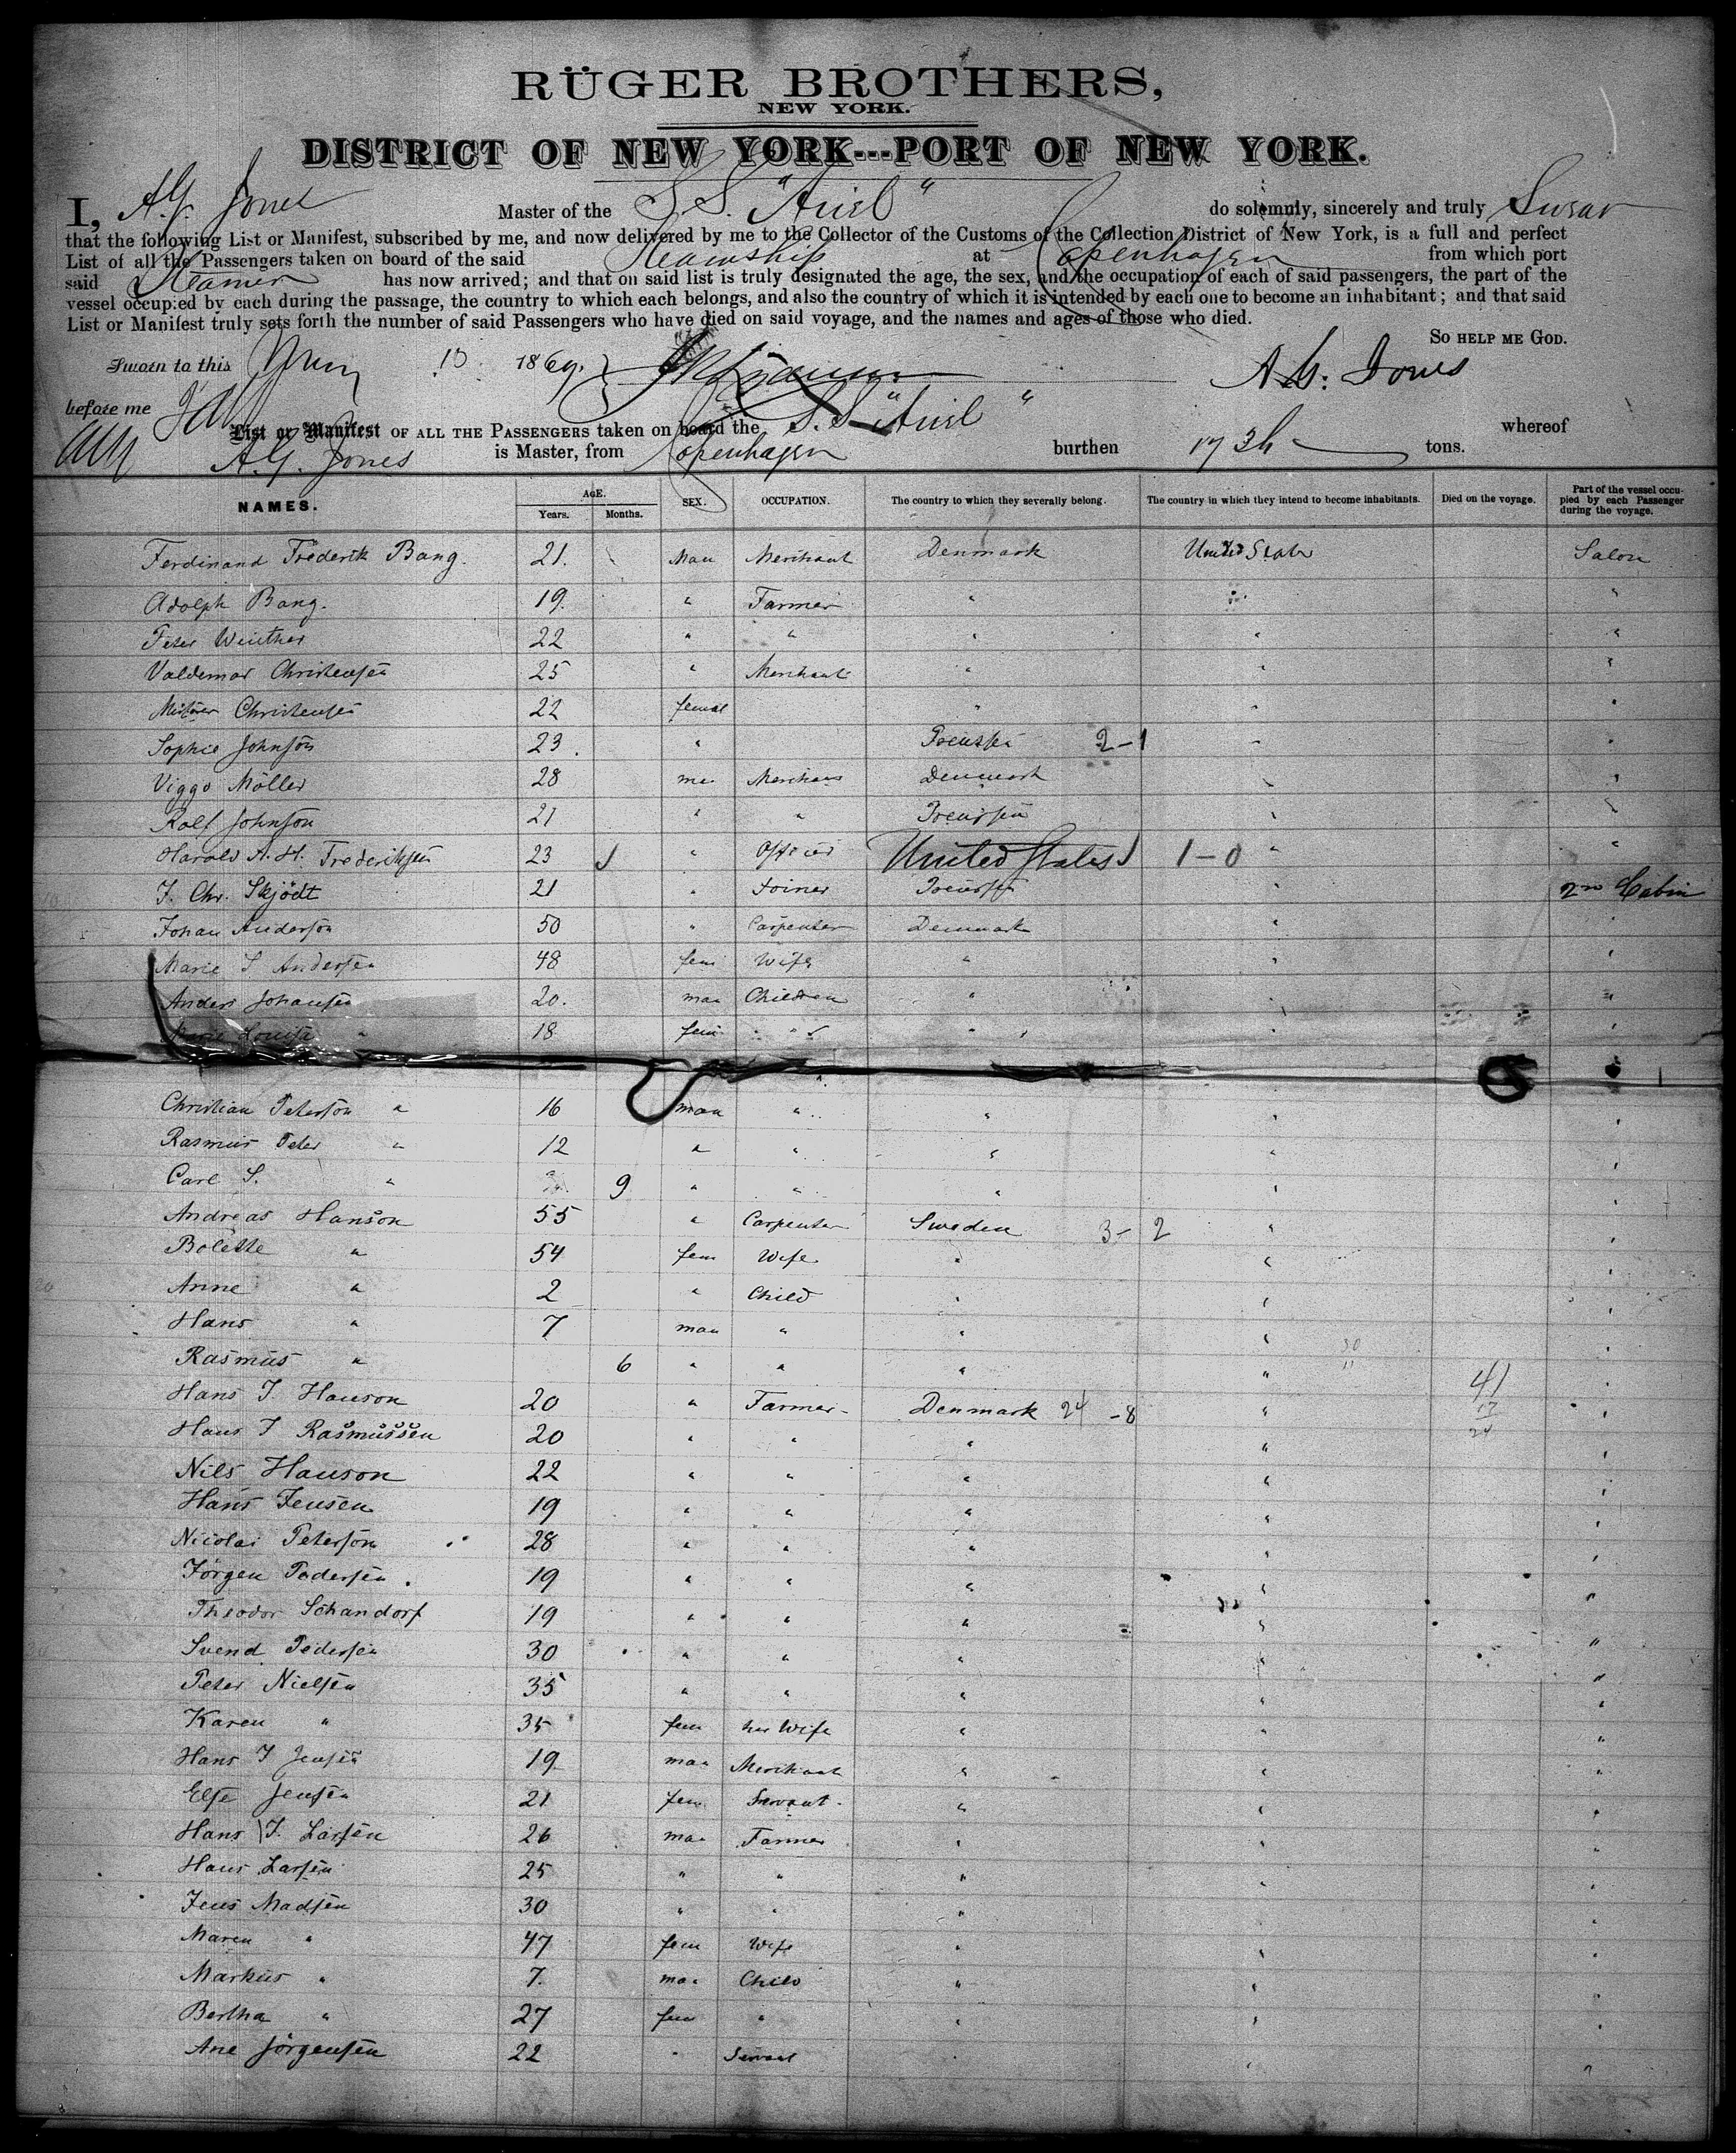 RÜGER BROTHERS,
NEW YORK.
DISTRICT OF NEW YORK---PORT OF NEW YORK.
I, A.G. Jones Master of the S.S. "Ariel" do solemnly, sincerely and truly Swear
that the following List or Manifest, subscribed by me, and now delivered by me to the Collector of the Customs of the Collection District of New York, is a full and perfect
List of all the Passengers taken on board of the said Steamship at Copenhagen from which port
said Steamer has now arrived; and that on said list is truly designated the age, the sex, and the occupation of each of said passengers, the part of the
vessel occupied by each during the passage, the country to which each belongs, and also the country of which it is intended by each one to become an inhabitant; and that said
List or Manifest truly sets forth the number of said Passengers who have died on said voyage, and the names and ages of those who died.
SO HELP ME GOD.
Sworn to this 1869. A.G. Jones
before me
List or Manifest OF ALL THE PASSENGERS taken on board the S.S. "Ariel" whereof
A.G. Jones is Master, from Copenhagen burthen 1736 tons.
NAMES. AGE. Years. Months. SEX. OCCUPATION. The country to which they severally belong. The country in which they intend to become inhabitants. Died on the voyage. Part of the vessel occupied by each Passenger during the voyage.
Ferdinand Frederik Bang. 21. Man Merchant Denmark United States Salon
Adolph Bang. 19. " Farmer " " "
Peter Winther 22 " " " " "
Valdemar Christensen 25 " Merchant " " "
Christensen 22 femal " " "
Sophie Johnson 23. " Preussen 2-1 " "
Viggo Möller 28 man Merchant Denmark " "
Rolf Johnson 21 " " Preussen " "
Harald A. H. Frederiksen 23 " Officer United States 1-0 " "
J. Chr. Skjödt 21 " Joiner Preussen " 2nd Cabin
Johan Anderson 50 " Carpenter Denmark " "
Marie S Andersen 48 fem Wife " " "
Anders Johansen 20. man Children " " "
Marie Louise " 18 fem " " " "
Christian Peterson " 16 man " " " "
Rasmus Peter " 12 " " " " "
Carl S. " 9 " " " " "
Andreas Hanson 55 " Carpenter Sweden 3-2 " "
Bolette " 54 fem Wife " " "
Anne " 2 " Child " " "
Hans " 7 man " " " "
Rasmus " 6 " " " " "
41
Hans J. Hanson 20 " Farmer Denmark 24-8 " "
17
24
Hans J Rasmussen 20 " " " " "
Nils Hanson 22 " " " " "
Hans Jensen 19 " " " " "
Nicolai Peterson 28 " " " " "
Jörgen Pedersen. 19 " " " " "
Theodor Schandorf 19 " " " " "
Svend Pedersen 30 " " " " "
Peter Nielsen 35 " " " " "
Karen " 35 fem his Wife " " "
Hans J Jensen 19 man Merchant " " "
Else Jensen 21 fem Servant " " "
Hans J. Larsen 26 man Farmer " " "
Hans Larsen 25 " " " " "
Jens Madsen 30 " " " " "
Maren " 47 fem Wife " " "
Markus " 7. man Child " " "
Bertha " 27 fem " " " "
Ane Jörgensen 22 " Servant " " "